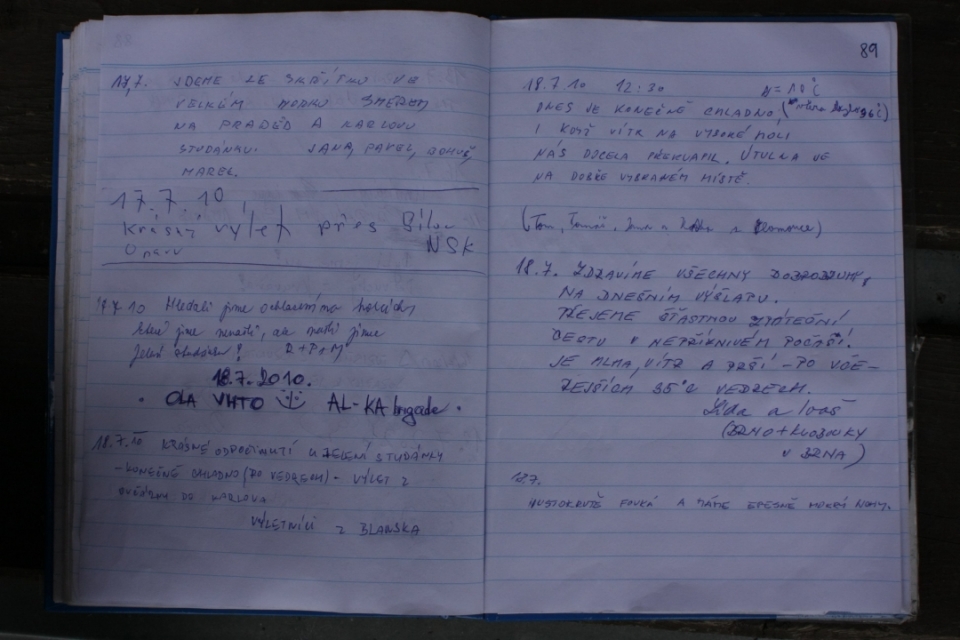 88
17.7. JDEME ZE SKŘÍTKU VE
VELKÉM HORKU SMĚREM
NA PRADĚD A KARLOVU
STUDÁNKU. JANA, PAVEL, BOHUŠ,
MAREK.
17.7.10,
Krásný výlet přes Bílou
Opavu NSK
17.7.10 Hledali jsme
které jsme nenašli, ale našli jsme
Zelenou studánku! R+P+M
18.7.2010.
OLA VHTO AL-KA brigade.
18.7.10 KRÁSNÉ ODPOČINUTÍ U ZELENÉ STUDÁNKY
- KONEČNĚ CHLADNO (PO VEDREM) - VÝLET Z
DO KARLOVA
VÝLETNÍCI Z BLANSKA
89
18.7.10 12:30
DNES JE KONEČNĚ CHLADNO,
I KDYŽ VÍTR NA VYSOKÉ HOLI
NÁS DOCELA PŘEKVAPIL. ÚTULNA JE
NA DOBŘE VYBRANÉM MÍSTĚ.
(Tom, Tomáš, z Olomouce)
18.7. ZDRAVÍME VŠECHNY DOBRODRUHY,
NA DNEŠNÍM VÝŠLAPU.
PŘEJEME ŠŤASTNOU ZPÁTEČNÍ
CESTU V NEPŘÍZNIVÉM POČASÍ.
JE MLHA, VÍTR A PRŠÍ - PO VČE-
REJŠÍCH 35°C VEDRECH.
Lída a
(BRNO + KLOBOUKY
U BRNA)
18.7.
HUSTOKRUTĚ FOUKÁ A MÁME DĚSNĚ MOKRÝ NOHY.